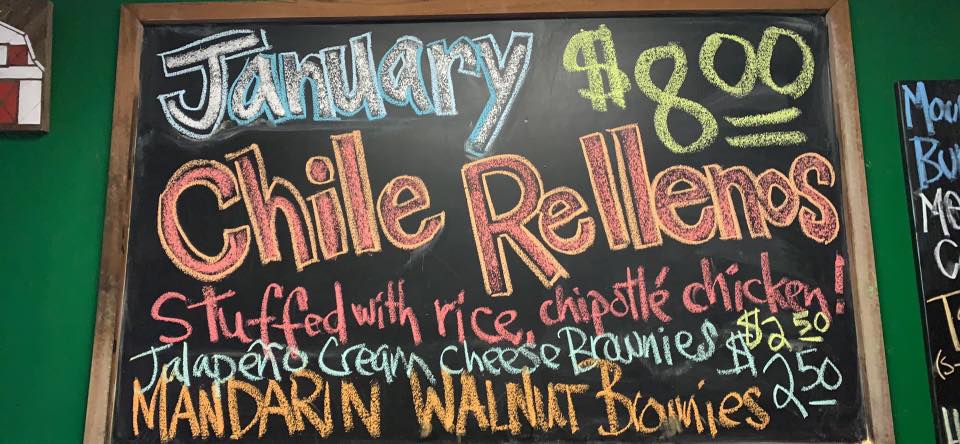 January $8.00
Chile Rellenos
Stuffed with rice, chipotlé chicken!
Jalapeño Cream Cheese Brownies $2.50
MANDARIN WALNUT Brownies $2.50